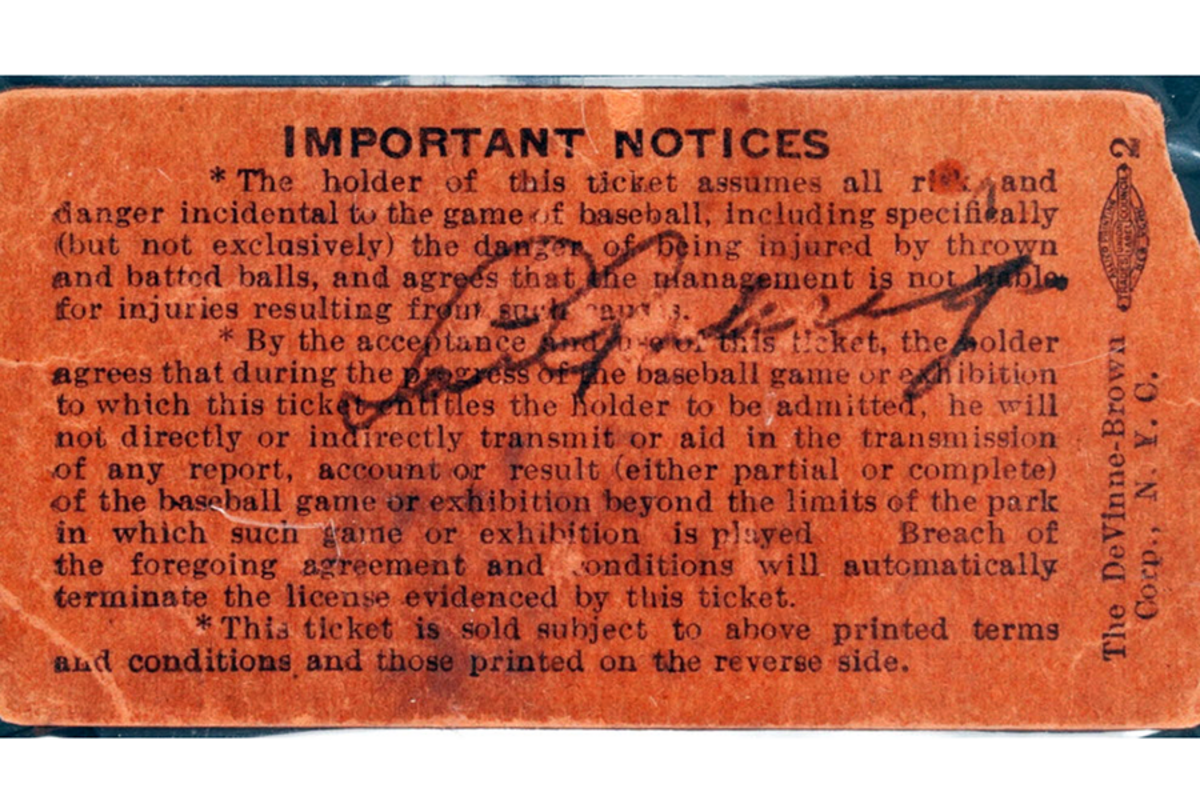 IMPORTANT NOTICES
* The holder of this ticket assumes all risk and
danger incidental to the game of baseball, including specifically
(but not exclusively) the danger of being injured by thrown
and batted balls, and agrees that the management is not liable
for injuries resulting from such causes.
* By the acceptance and use of this ticket, the holder
agrees that during the progress of the baseball game or exhibition
to which this ticket entitles the holder to be admitted, he will
not directly or indirectly transmit or aid in the transmission
of any report, account or result (either partial or complete)
of the baseball game or exhibition beyond the limits of the park
in which such game or exhibition is played Breach of
the foregoing agreement and conditions will automatically
terminate the license evidenced by this ticket.
* This ticket is sold subject to above printed terms
and conditions and those printed on the reverse side.
The DeVinne-Brown
Corp., N. Y. C.
2